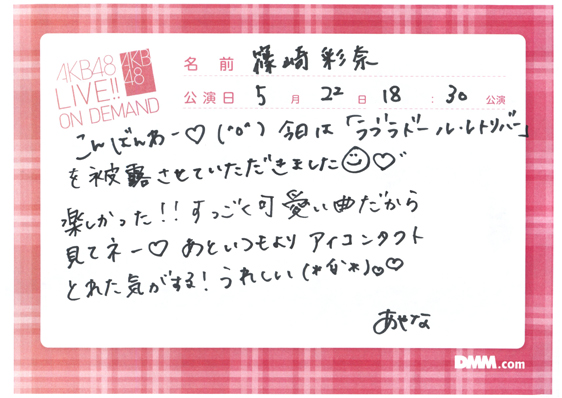 AKB48
LIVE!!
ON DEMAND
AKB
48
名前 篠崎彩奈
公演日 5月22日18:30公演
こんばんわー♡(^o^) 今日は「ラブラドール・レトリバー」
を披露させていただきました☺♡
楽しかった!!すっごく可愛い曲だから
見てネー♡ あといつもより アイコンタクト
とれた気がする!うれしい(*^^*)♡♡
あやな
DMM.com